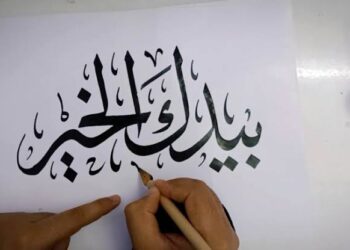 بيدك الخير